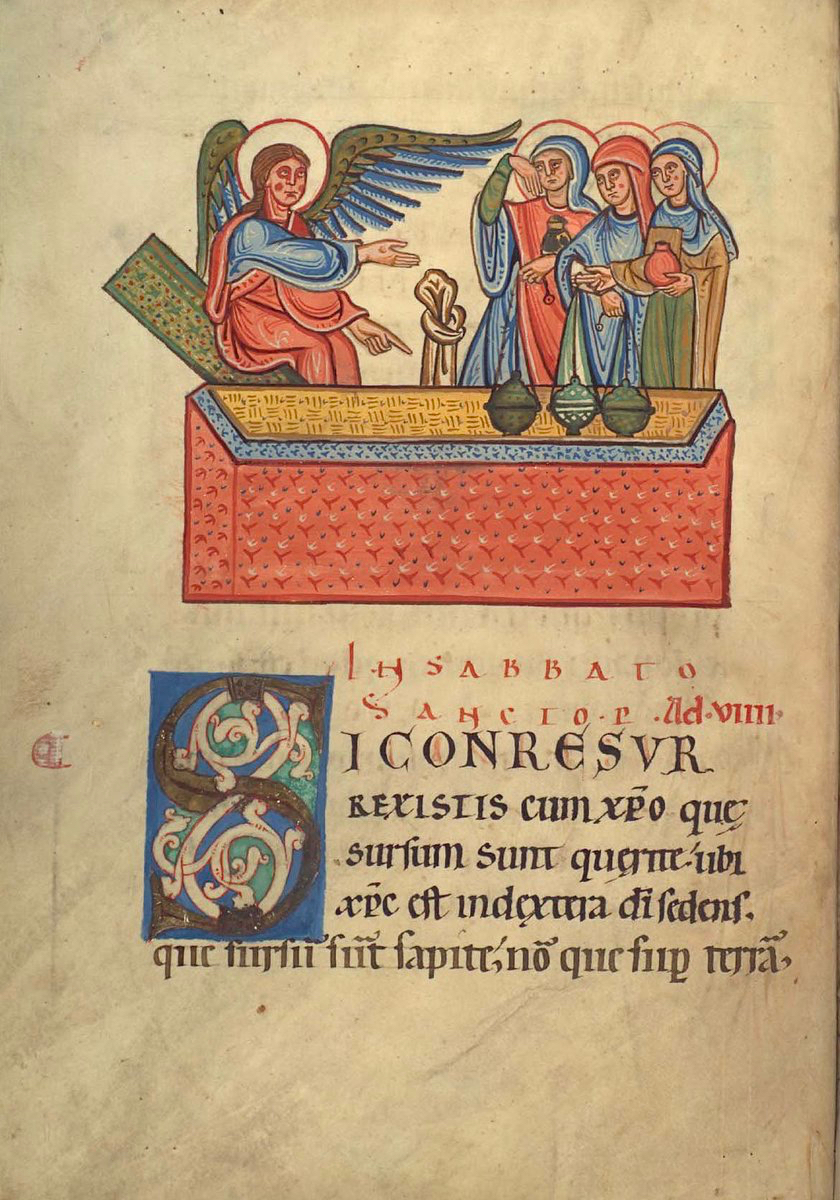 IN SABBATO
SANCTO·P· ·Ad·viiii·
SI CONRESVR
REXISTIS cum xp̄o quę
sursum sunt quęrite·ubi
xp̄c est indextera dī sedens.
que sursū sūt sapite, nō que sup̱ terrā,